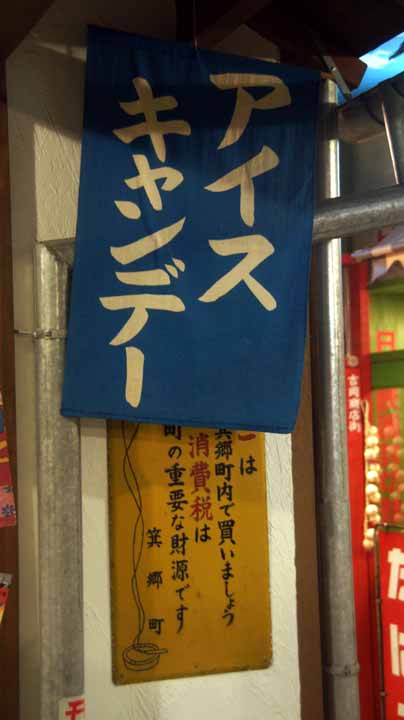 アイス
キャンデー
は
箕郷町内で買いましょう
消費税は
町の重要な財源です
箕郷町
吉岡商店街
日
たば